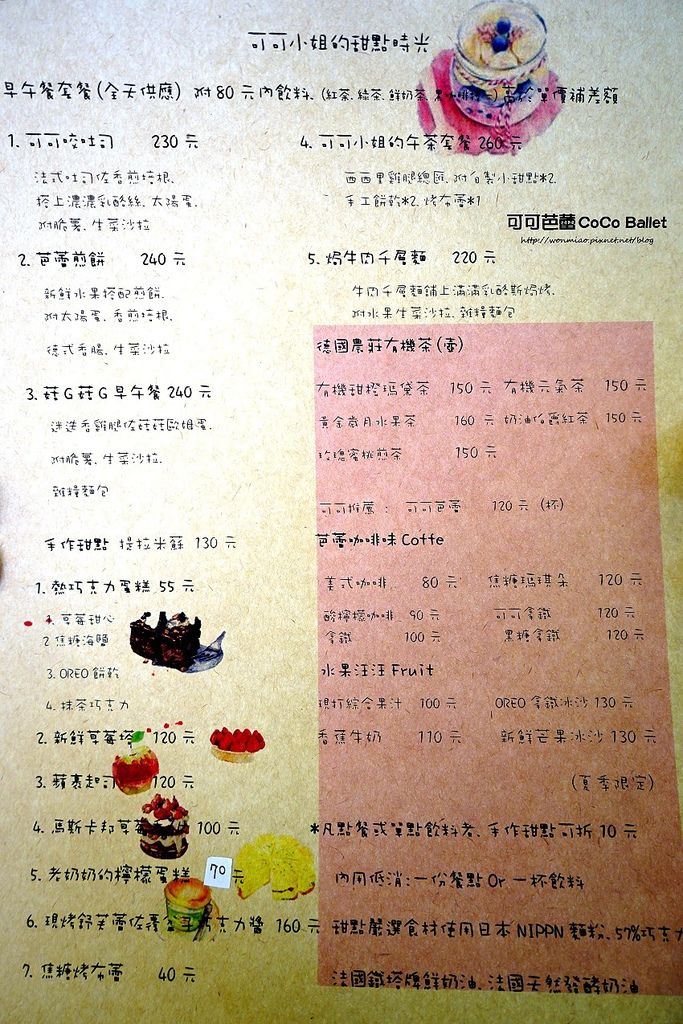 可可小姐的甜點時光
早午餐套餐(全天供應) 附80元內飲料、(紅茶、綠茶、鮮奶茶、 高於單價補差額
1. 可可咬吐司 230 元
法式吐司佐香煎培根、
搭上濃濃乳酪絲、太陽蛋、
附脆薯、生菜沙拉
2. 芭蕾煎餅 240 元
新鮮水果搭配煎餅、
附太陽蛋、香煎培根、
德式香腸、生菜沙拉
3. 菇G菇G早午餐 240 元
迷迭香雞腿佐菇菇歐姆蛋、
附脆薯、生菜沙拉、
雜糧麵包
4. 可可小姐的午茶套餐 260 元
西西里雞腿總匯、附自製小甜點*2、
手工餅乾*2、烤布蕾*1
可可芭蕾 CoCo Ballet
http://wonmiao.pixnet.net/blog
5. 焗牛肉千層麵 220 元
牛肉千層麵鋪上滿滿乳酪斯焗烤、
附水果生菜沙拉、雜糧麵包
手作甜點 提拉米蘇 130 元
1. 熱巧克力蛋糕 55 元
1. 草莓甜心
2. 焦糖海鹽
3. OREO 餅乾
4. 抹茶巧克力
2. 新鮮草莓塔 120 元
3. 蘋裹起司 120 元
4. 馬斯卡邦草莓 100 元
5. 老奶奶的檸檬蛋糕 70 元
6. 現烤舒芙蕾佐覆盆子巧克力醬 160 元
7. 焦糖烤布蕾 40 元
德國農莊有機茶(壺)
有機甜橙瑪黛茶 150 元 有機元氣茶 150 元
黃金歲月水果茶 160 元 奶油伯爵紅茶 150 元
玫瑰蜜桃煎茶 150 元
可可推薦: 可可芭蕾 120 元 (杯)
芭蕾咖啡味 Coffe
美式咖啡 80 元 焦糖瑪琪朵 120 元
酸檸檬咖啡 90 元 可可拿鐵 120 元
拿鐵 100 元 黑糖拿鐵 120 元
水果汪汪 Fruit
現打綜合果汁 100 元 OREO 拿鐵冰沙 130 元
香蕉牛奶 110 元 新鮮芒果冰沙 130 元
(夏季限定)
*凡點餐或單點飲料者、手作甜點可折 10 元
內用低消:一份餐點 Or 一杯飲料
甜點嚴選食材使用日本 NIPPN 麵粉、57%巧克力
法國鐵塔牌鮮奶油、法國天然發酵奶油